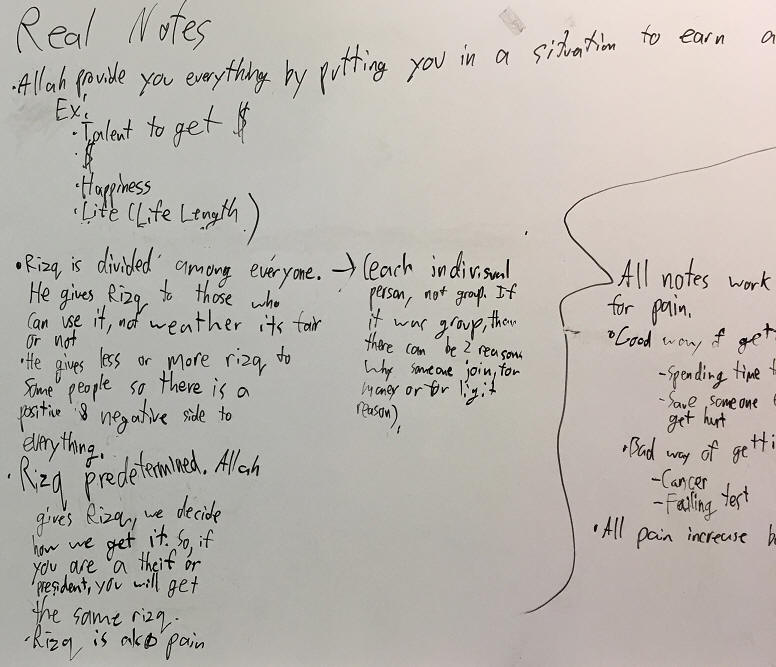 Real Notes
·Allah provide you everything by putting you in a situation to earn a
Ex:
·Talent to get $
·$
·Happiness
·Life (Life Length)
·Rizq is divided among everyone. → (each indivisual
person, not group. If
it was group, then
there can be 2 reasons
why someone join, for
money or for ligit
reason).
He gives Rizq to those who
can use it, not weather its fair
or not
·He gives less or more rizq to
some people so there is a
positive & negative side to
everything.
·Rizq predetermined. Allah
gives Rizq, we decide
how we get it. So, if
you are a theif or
president, you will get
the same rizq.
·Rizq is also pain
All notes work
for pain.
·Good way of getti
-Spending time t
-Save someone
get hurt
·Bad way of getti
-Cancer
-Failing test
·All pain increase b